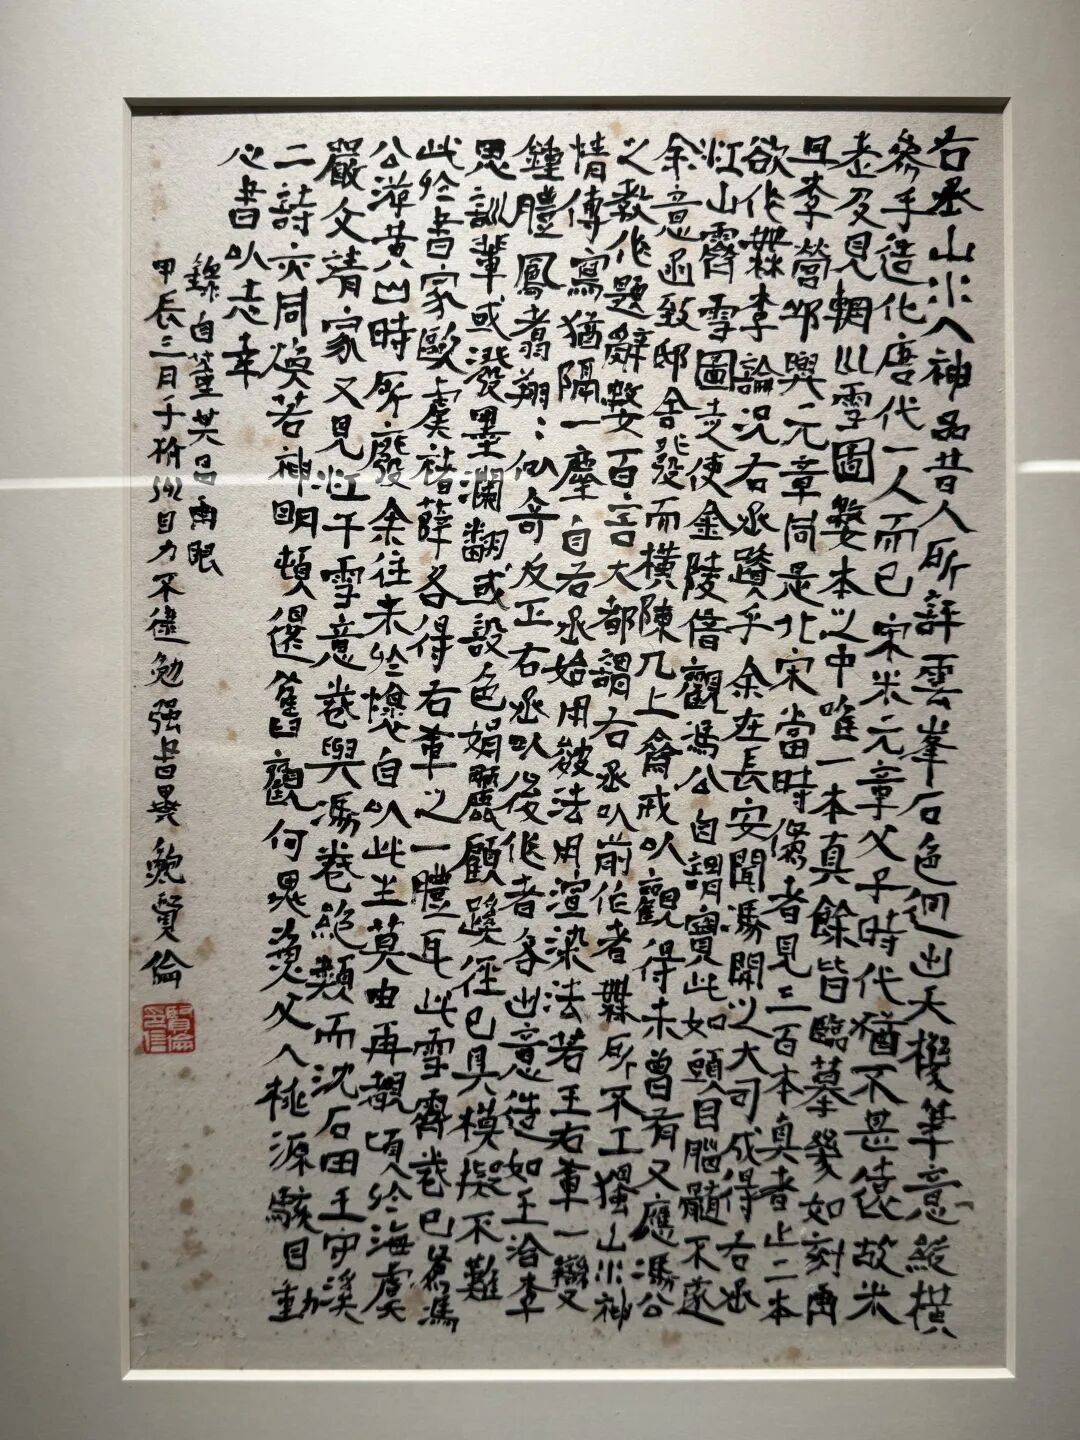 右丞山水入神品昔人所評雲峯石色迥出天機筆意縱橫
參乎造化唐代一人而已宋米元章父子時代猶不甚遠故米
老及見輞川雪圖數本之中唯一本真餘皆臨摹幾如刻画
且李營邱與元章同是北宋當時偽者見三百本真者止二本
欲作無李論況右丞蹟乎余在長安聞馮開之大司成得右丞
江山霽雪圖走使金陵借觀馮公自謂寶此如頭目腦髓不逆
余意函致邸舍發而橫陳几上齋戒以觀得未曾有又應馮公
之教作題辭數百言大都謂右丞以前作者無所不工獨山水神
情傳寫猶隔一塵自右丞始用皴法用渲染法若王右軍一變
鍾體鳳翥翔々似奇反正右丞以後作者各出意造如王洽李
思訓輩或潑墨瀾翻或設色娟麗顧蹊徑已具模擬不難
此於書家歐虞褚薛各得右軍之一體耳此雪霽卷已為馮
公游黃山時所廢余往來於懷自以此生莫由再覯頃於海虞
嚴文靖家又見江干雪意卷與馮卷絕類而沈石田王守溪
二詩亦同煥若神明頓還舊觀何異漁父入桃源駭目動
心書以志幸
錄自董其昌画眼
甲辰三月于徐州目力不逮勉强書畢鮑賢倫
賢倫印信